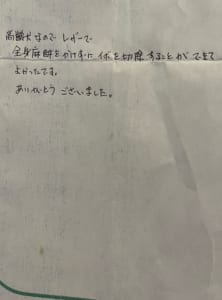 高齢犬なので レザーで
全身麻酔をかけずに イボを切除することが できて
よかったです。
ありがとう ございました。